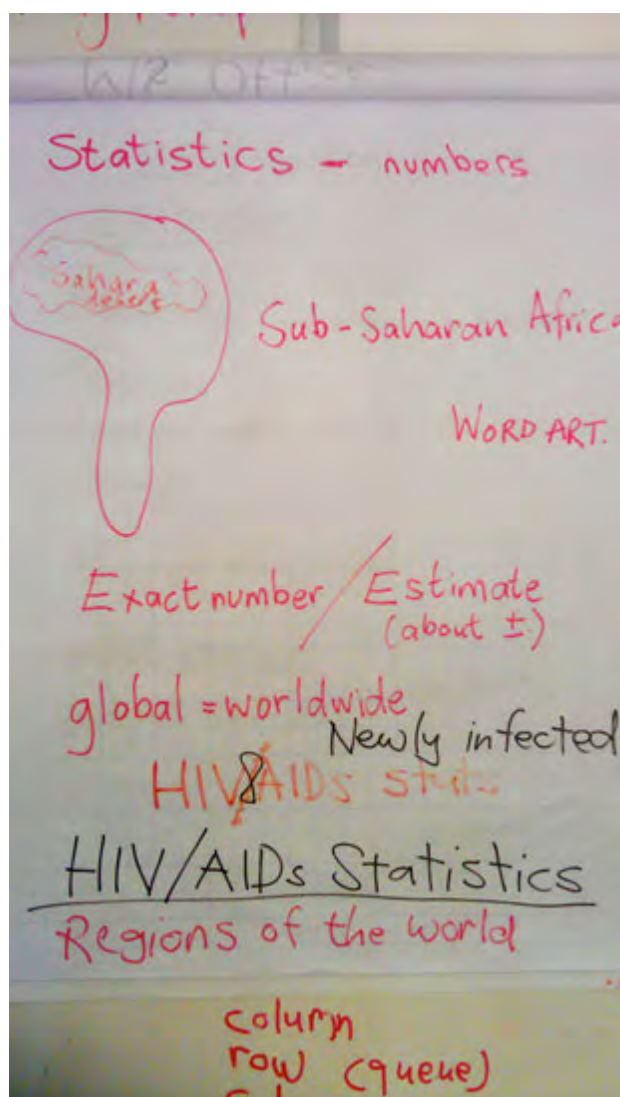 Statistics - numbers
Sahara
desert
Sub-Saharan Africa
WORD ART.
Exact number / Estimate
(about ±)
global = worldwide
Newly infected
HIV/AIDs
HIV/AIDs Statistics
Regions of the world
column
row (queue)